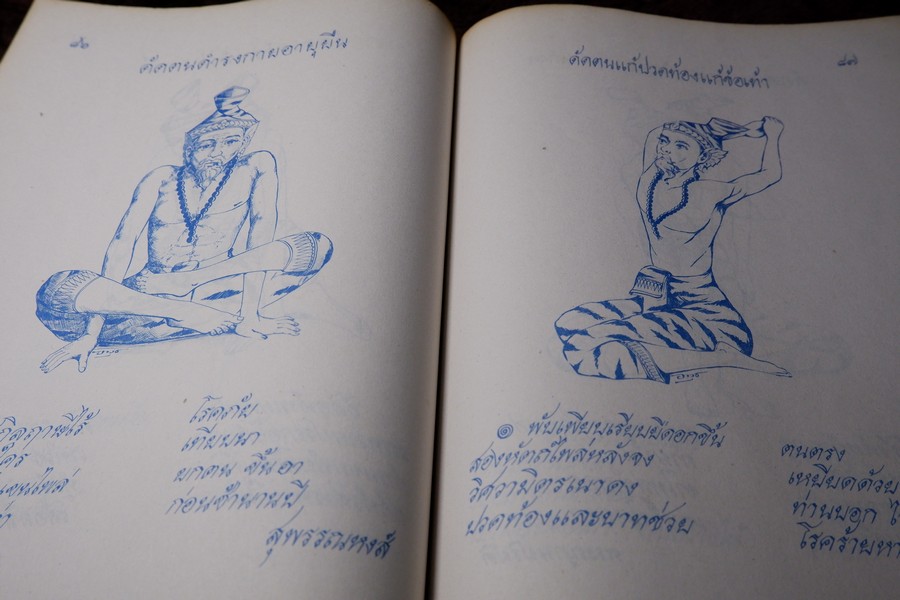 ๔๖
ดัดตนดำรงกายอายุยืน
โรคภัย
เทียบนา
ยกตน ขึ้นฮา
ก่อนช้านานปี
สุพรรณหงส์
๔๗
ดัดตนแก้ปวดท้องแก้ข้อเท้า
๏ พับเพียบเรียบยืดอกขึ้น ตนตรง
สองหัตถ์ไพล่หลังจง เหยียดด้วย
วัศวามิตรเนาดง ท่านบอก
ปวดท้องและบาทช่วย โรคร้ายหา